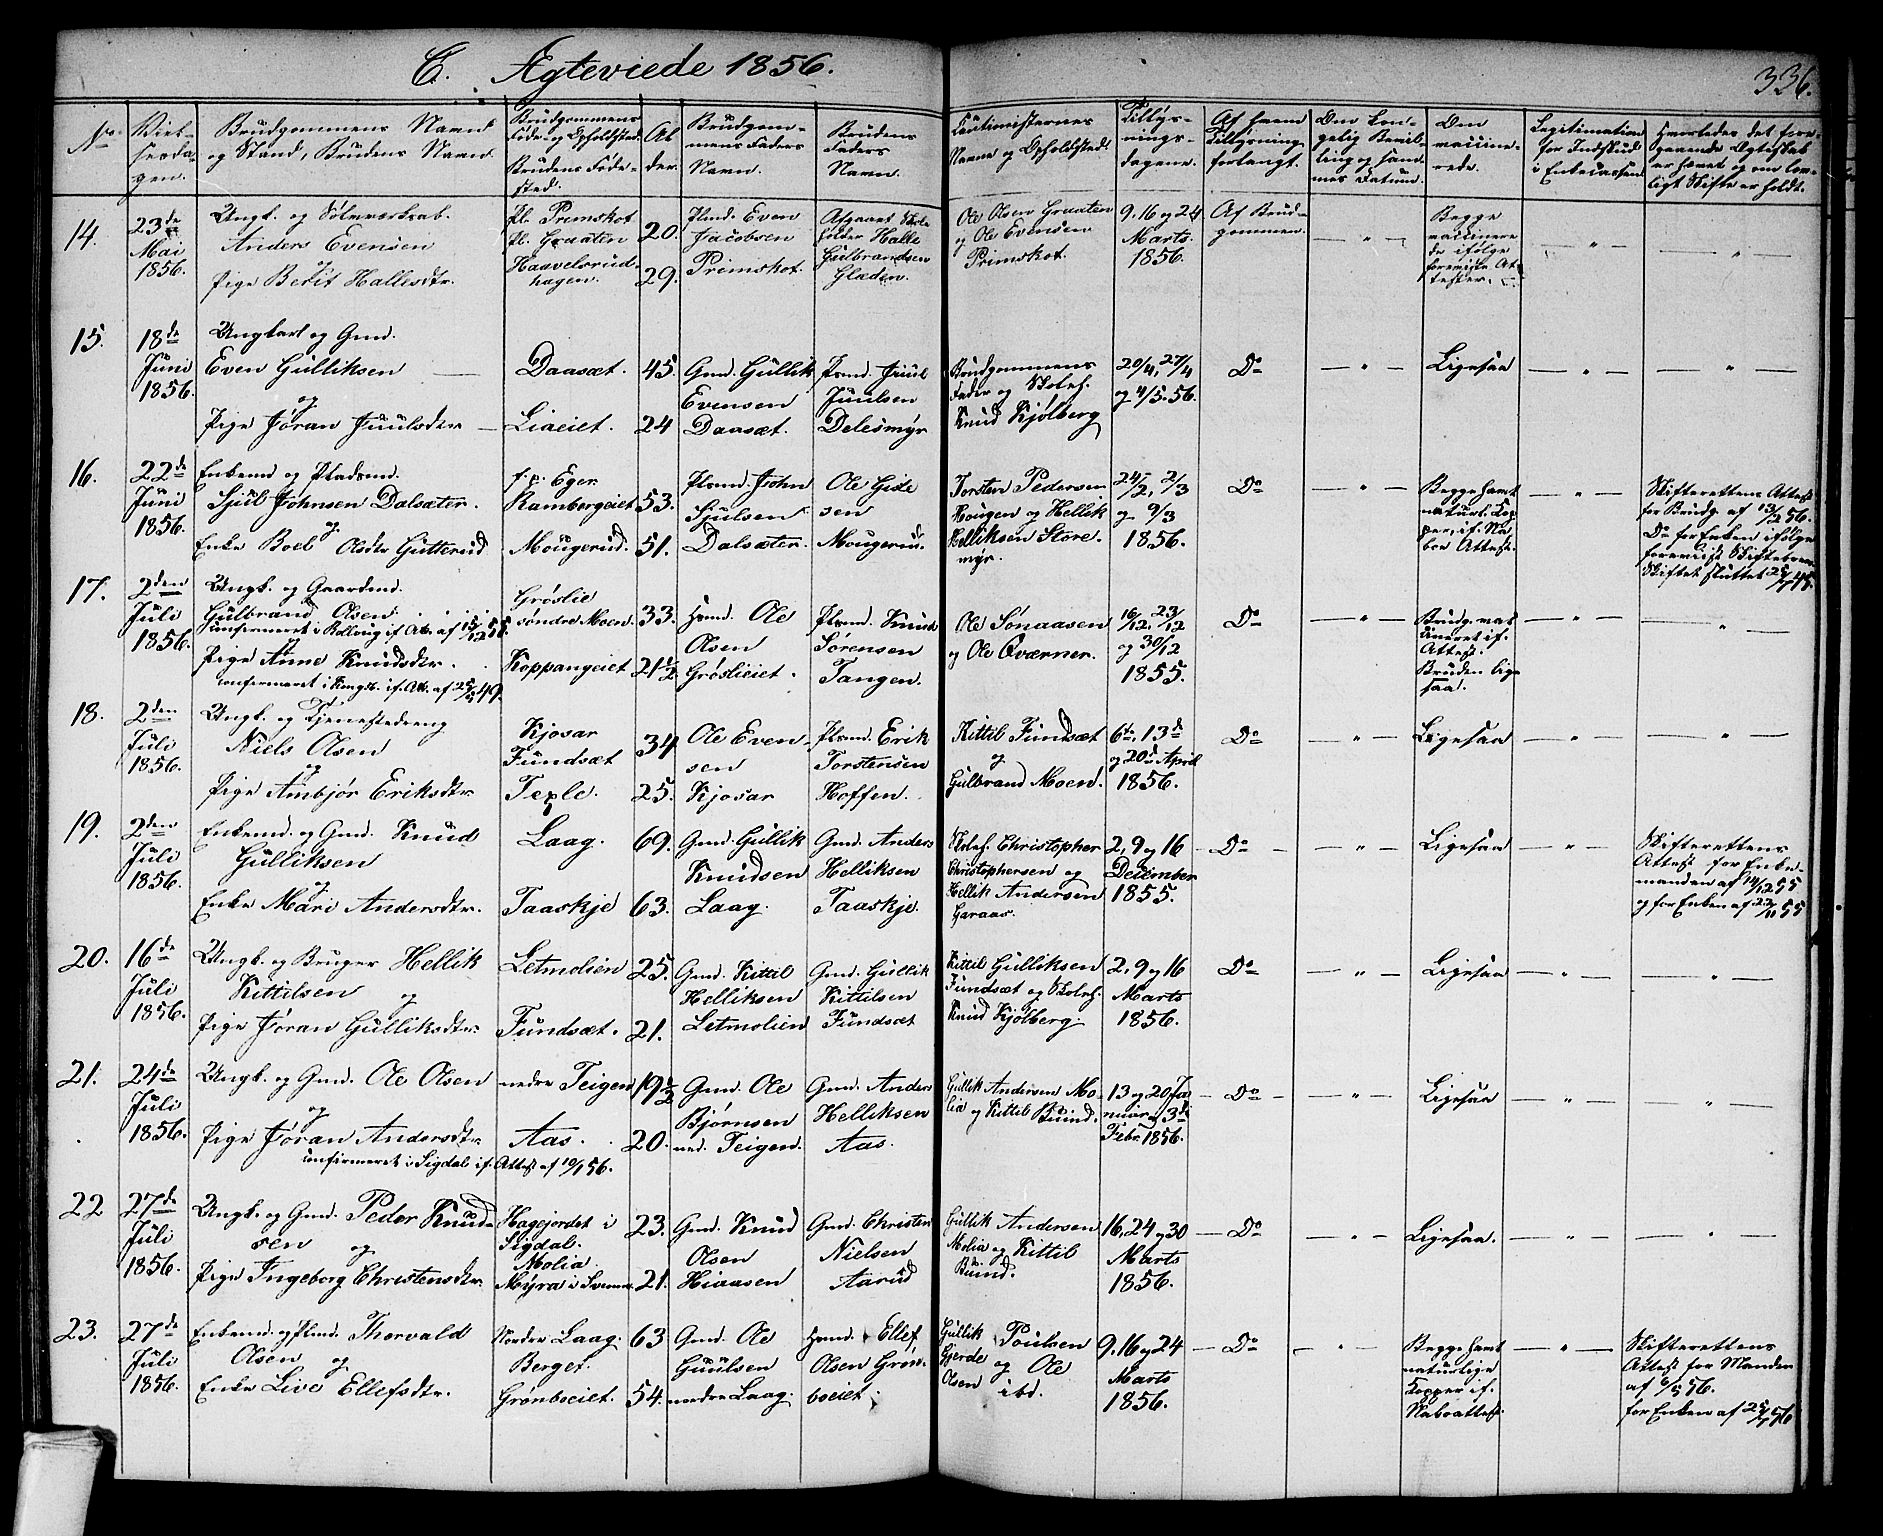 C. Ægteviede 1856.
336.
No.
Viel-
sesda-
gen.
Brudgommens Navn
og Stand, Brudens Navn.
Brudgommens
Føde- og Opholdsted.
Brudens Føde-
sted.
Al-
der.
Brudgom-
mens Faders
Navn.
Brudens
Faders
Navn.
Cautionisternes
Navne og Opholdsted.
Tillys-
nings-
dagene.
Af hvem
Tillysning
forlangt.
Den kon-
gelig Bevil-
ling og sam-
mes Datum.
Om
vaccine-
rede.
Legitimation
for Indskud
i Enkecassen.
Hvorledes det fore-
gaaende Ægteskab
er hævet og om lov-
ligt Skifte er holdt.
14.
23de
Mai
1856.
Ungk. og Sølvværksarb.
Anders Evensen
og
Pige Berit Hallesdtr.
Pl. Primskot
Pl. Graaten
Haavelsrud-
hagen.
20.
29.
Plmd. Even
Jacobsen
Primskot.
Afgaaet
Halle
Gulbrandsen
Gladen.
Ole Olsen Graaten
og Ole Evensen
Primskot.
9, 16 og 24
Marts.
1856.
Af Brud-
gommen.
— " —
Begge
vaccinere-
de ifølge
foreviste At-
tester.
— " —
— " —
15.
18de
Juni
1856.
Ungkarl og Gmd.
Even Gulliksen
og
Pige Jøran Juulsdtr.
Daasæt.
Liaeiet.
45.
24
Gmd. Gullik
Evensen
Daasæt.
Plsmd. Juul
Juulsen
Delesmyr
Brudgommens
Fader og Skolel.
Knud Kjølberg
20/4, 27/4
og 4/5. 56.
Do
— " —
Ligesaa
— " —
— " —
16.
22de
Juni
1856.
Enkemd. og Pladsmd.
Sjul Johnsen Dalsæter.
og
Enke Boel Olsdtr Gutterud
f. p. Eger
Ramborgeiet
Mougerud.
53.
51.
Plsmd. John
Sjulsen
Dalsæter.
Ole Gide
sen
Mougerud.
Torsten Pedersen
Hougen og Hellik
Helliksen Store-
myr.
24/2, 2/3
og 9/3
1856.
Do
— " —
Begge havt
naturl. Kop-
per, if. Na-
bo Attest.
— " —
Skifterettens Attest
for Brudg. af 13/2 56.
Do for Enken ifølge
forevist Skiftebrev.
Skiftet sluttet
17.
2den
Juli
1856.
Ungk. og Gaardmd.
Gulbrand Olsen.
confirmeret i Rollaug if. Att. af 15/12 55.
Pige Anne Knudsdtr.
confirmeret i Kongsb. if. Att. af
Grøslie
søndre Moen.
Koppangeiet
33.
21 1/2
Hsmd. Ole
Olsen
Grøslieiet.
Plsmd. Knud
Sørensen
Tangen.
Ole Sønaasen
og Ole Qværner.
16/12, 23/12
og 30/12
1855.
Do
— " —
Brudg. vac-
cineret if.
Attest.
Bruden lige-
saa.
— " —
— " —
18.
2den
Juli
1856.
Ungk. og Tjenestedreng
Niels Olsen
og
Pige Ambjør Eriksdtr
Kjosar
Fundsæt
Teple.
34
25.
Ole Even-
sen
Kjosar
Plsmd. Erik
Torstensen
Hoffen.
Kittil Fundsæt
og
Gulbrand Moen.
6te, 13de
og 20de April
1856.
Do
— " —
Ligesaa
— " —
— " —
19.
2den
Juli
1856.
Enkemd. og Gmd. Knud
Gulliksen
og
Enke Mari Andersdtr.
Laag.
Taaskje
69.
63.
Gmd. Gullik
Knudsen
Laag.
Gmd. Anders
Helliksen
Taaskje.
Skolel. Christopher
Christophersen og
Hellik Andersen
Garaas.
2, 9 og 16
December
1855.
— Do —
— " —
Ligesaa
— " —
Skifterettens
Attest for Enke-
manden af 14/12 55
og for Enken af 23/11 55
20.
16de
Juli
1856.
Ungk. og Bruger Hellik
Kittilsen
og
Pige Jøran Gulliksdtr.
Letmolien
Fundsæt.
25.
21.
Gmd. Kittil
Helliksen
Letmolien
Gmd. Gullik
Kittilsen
Fundsæt
Kittil Gulliksen
Fundsæt og Skolel.
Knud Kjølberg.
2, 9 og 16
Marts
1856.
Do
— " —
Ligesaa
— " —
— " —
21.
24de
Juli
1856.
Ungk. og Gmd. Ole Olsen
og
Pige Jøran Andersdtr
confirmeret i Sigdal if. Attest af 10/1 56.
nedre Teigen
Aas.
19 1/2
20.
Gmd. Ole
Bjørnsen
ned. Teigen.
Gmd. Anders
Helliksen
Aas.
Gullik Andersen Mo-
lia og Kittil Buind.
13 og 20 Ja-
nuar og 3de
Febr. 1856.
— Do —
— " —
Ligesaa
— " —
— " —
22
27de
Juli
1856.
Ungk. og Gmd. Peder Knud-
sen og
Pige Ingeborg Christensdtr.
Hagejordet i
Sigdal.
Molia.
Myra i Svenne
23.
21.
Gmd. Knud
Olsen
Hiaasen
Gmd. Christen
Nielsen
Aarud
Gullik Andersen
Molia og Kittil
Buind.
16, 24 og 30
Marts
1856.
— Do
— " —
Ligesaa.
— " —
— " —
23.
27de
Juli
1856.
Enkemd. og Plmd. Thorvald
Olsen og
Enke Live Ellefsdtr.
Nordre Laag.
Berget.
Grønboeiet.
63
54.
Gmd. Ole
Guulsen
nordre Laag.
Hsmd. Ellef
Olsen Grøn-
boeiet.
Gullik Poulsen
Gjerde og Ole
Olsen ibd.
9, 16 og 24
Marts
1856.
— Do
— " —
Begge havt
naturlige
Kopper if.
Naboattest.
— " —
Skifterettens
Attest for Manden
af 6/5 56.
for Enken af